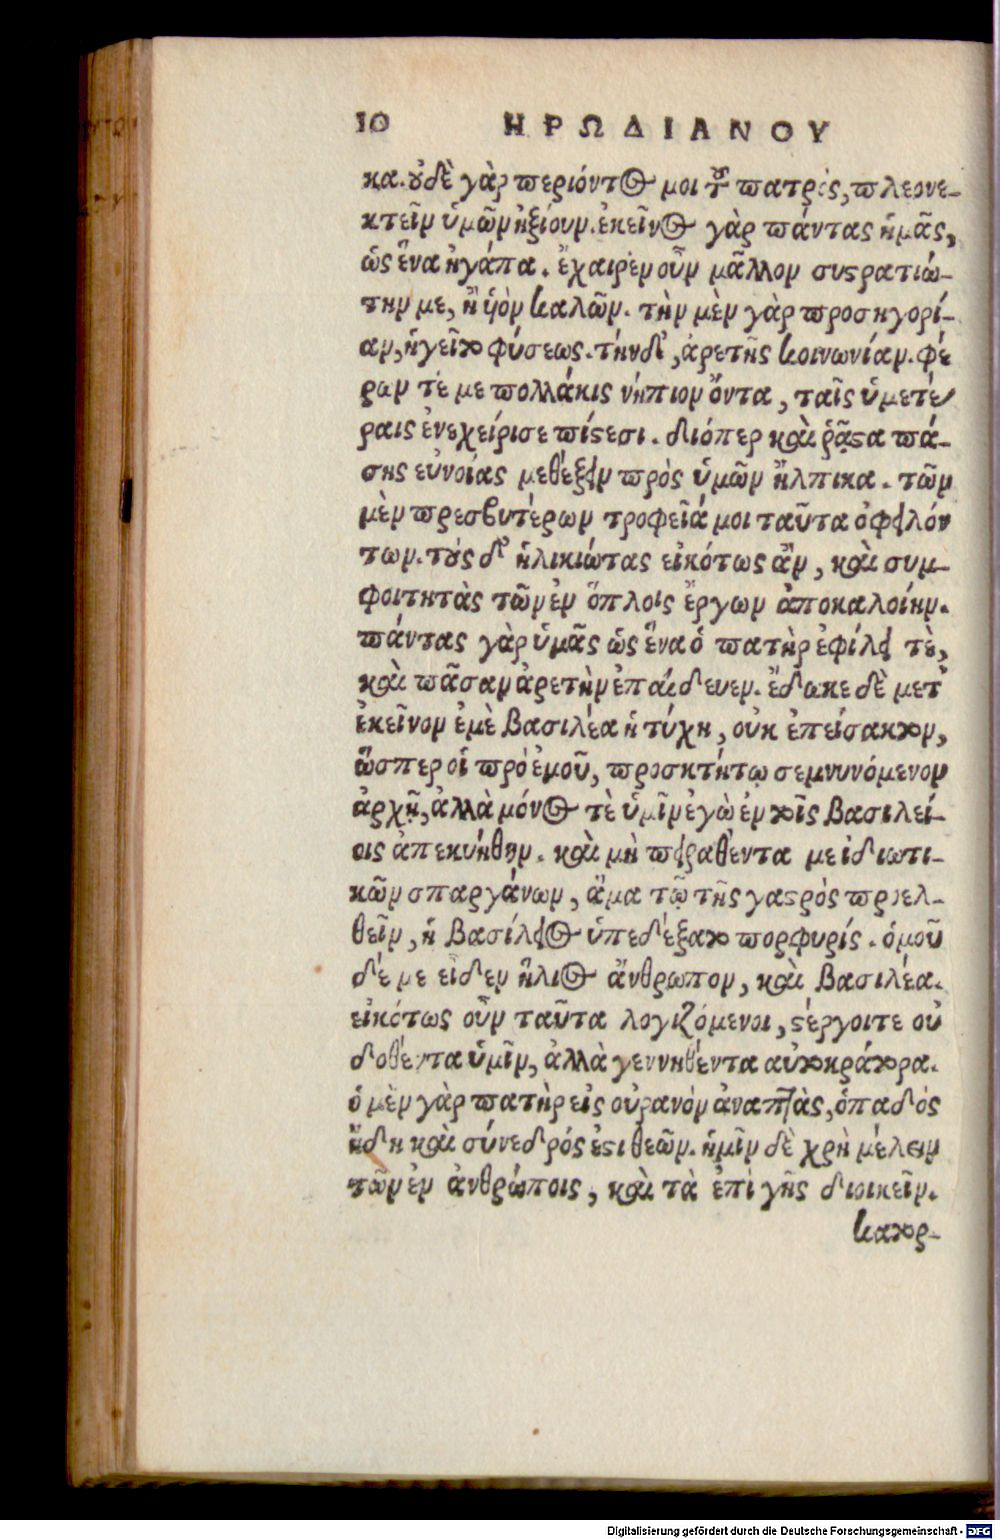 10 ΗΡΩΔΙΑΝΟΥ
κα. οὐδὲ γὰρ περιόντος μοι τοῦ πατρός, πλεονε-
κτεῖν ὑμῶν ἠξίουν. ἐκεῖνος γὰρ πάντας ἡμᾶς,
ὡς ἕνα ἠγάπα. ἔχαιρέν οὖν μᾶλλον συστρατιώ-
την με, ἢ ὑὸν καλῶν. τὴν μὲν γὰρ προσηγορί-
αν, ἡγεῖτο φύσεως. τὴν δ', ἀρετῆς κοινωνίαν. φέ
ρων τέ με πολλάκις νήπιον ὄντα, ταῖς ὑμετέ
ραις ἐνεχείρισε πίστεσι. διόπερ καὶ ῥᾷστα πά-
σης εὐνοίας μεθέξειν πρὸς ὑμῶν ἤλπικα. τῶν
μὲν πρεσβυτέρων τροφεῖά μοι ταῦτα ὀφειλόν
των. τοὺς δ' ἡλικιώτας εἰκότως ἂν, καὶ συμ-
φοιτητὰς τῶν ἐν ὅπλοις ἔργων ἀποκαλοίην.
πάντας γὰρ ὑμᾶς ὡς ἕνα ὁ πατὴρ ἐφίλει τὲ,
καὶ πᾶσαν ἀρετὴν ἐπαίδευεν. ἔδωκε δὲ μετ'
ἐκεῖνον ἐμὲ βασιλέα ἡ τύχη, οὐκ ἐπείσακτον,
ὥσπερ οἱ πρὸ ἐμοῦ, προσκτήτῳ σεμνυνόμενον
ἀρχῇ, ἀλλὰ μόνος τὲ ὑμῖν ἐγὼ ἐν τοῖς βασιλεί-
οις ἀπεκυήθην. καὶ μὴ πειραθέντα με ἰδιωτι-
κῶν σπαργάνων, ἅμα τῷ τῆς γαστρὸς προελ-
θεῖν, ἡ βασίλειος ὑπεδέξατο πορφυρίς. ὁμοῦ
δέ με εἶδεν ἥλιος ἄνθρωπον, καὶ βασιλέα.
εἰκότως οὖν ταῦτα λογιζόμενοι, στέργοιτε οὐ
δοθέντα ὑμῖν, ἀλλὰ γεννηθέντα αὐτοκράτορα.
ὁ μὲν γὰρ πατὴρ εἰς οὐρανὸν ἀναπτὰς, ὀπαδός
ἤδη καὶ σύνεδρός ἐστι θεῶν. ἡμῖν δὲ χρὴ μέλειν
τῶν ἐν ἀνθρώποις, καὶ τὰ ἐπὶ γῆς διοικεῖν.
κατορ-
Digitalisierung gefördert durch die Deutsche Forschungsgemeinschaft - DFG